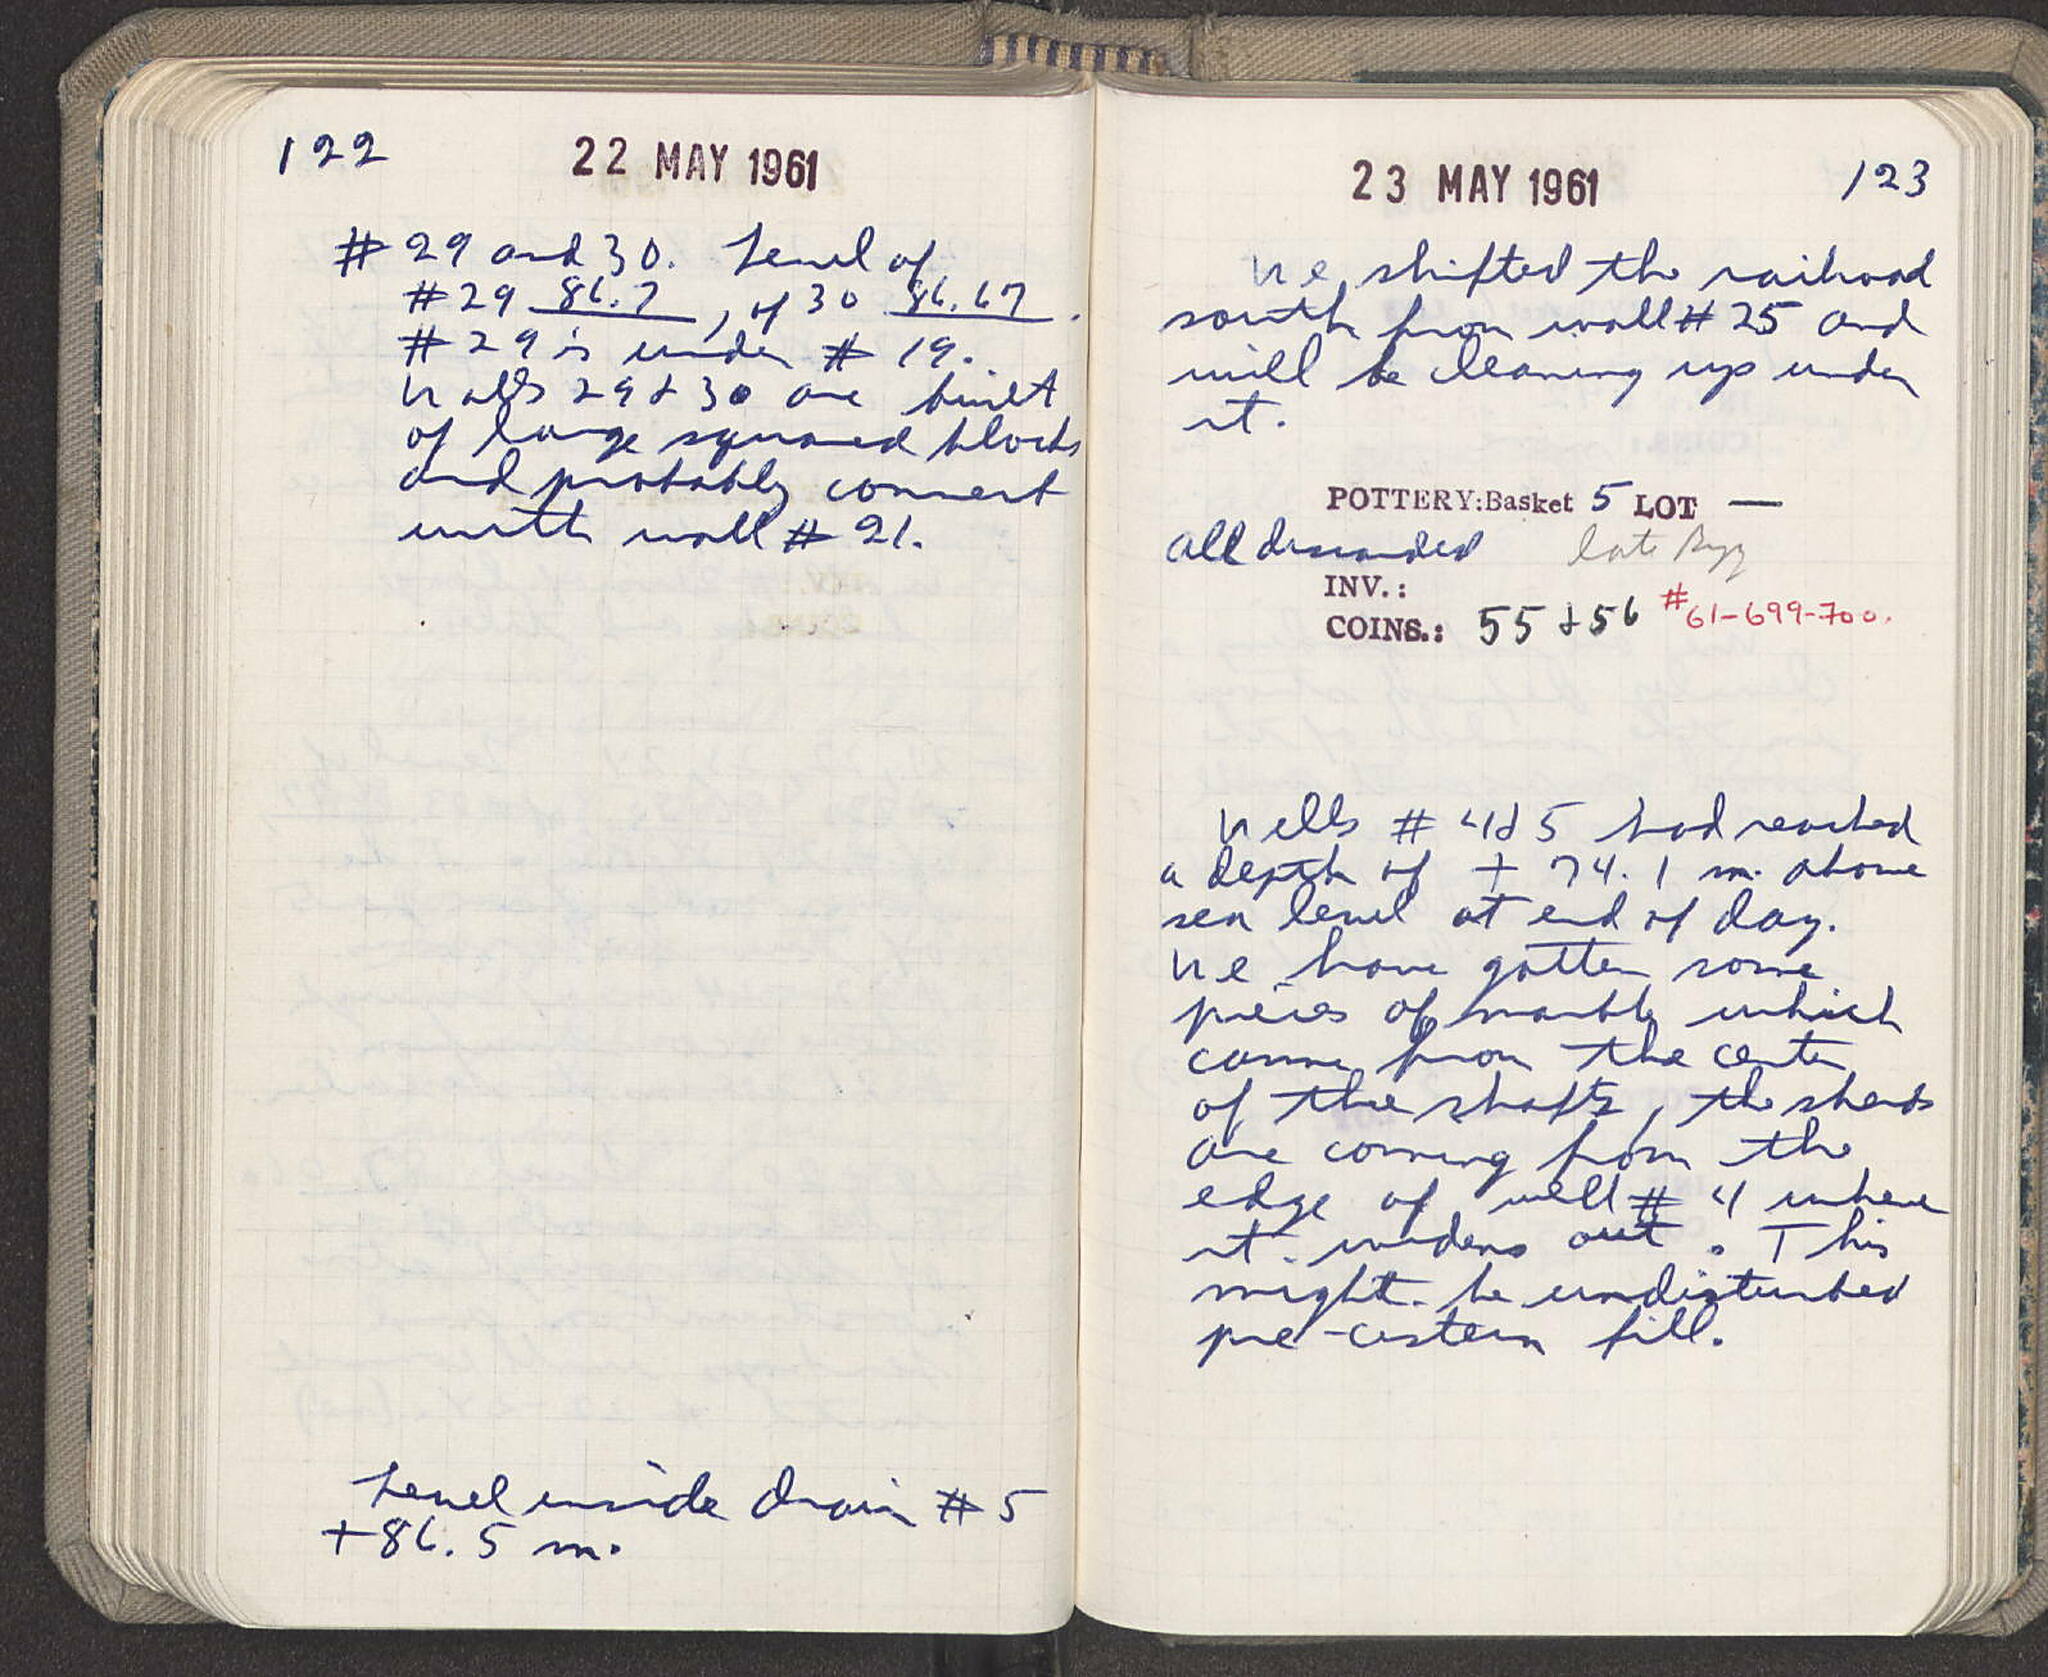 122
22 MAY 1961
# 29 and 30. Level of
# 29 86.7, of 30 86.67.
# 29 is under # 19.
Walls 29 & 30 are built
of large squared blocks
and probably connect
with wall # 21.
Level inside drain # 5
+86.5 m.
23 MAY 1961
123
We shifted the railroad
south from wall # 25 and
will be cleaning up under
it.
POTTERY: Basket 5 LOT —
all discarded late Byz
INV.:
COINS.: 55 & 56 #61-699-700.
Wells # 4 & 5 had reached
a depth of + 74.1 m. above
sea level at end of day.
We have gotten some
pieces of marble which
came from the center
of the shafts, the sherds
are coming from the
edge of well # 4 where
it widens out. This
might be undisturbed
pre-cistern fill.